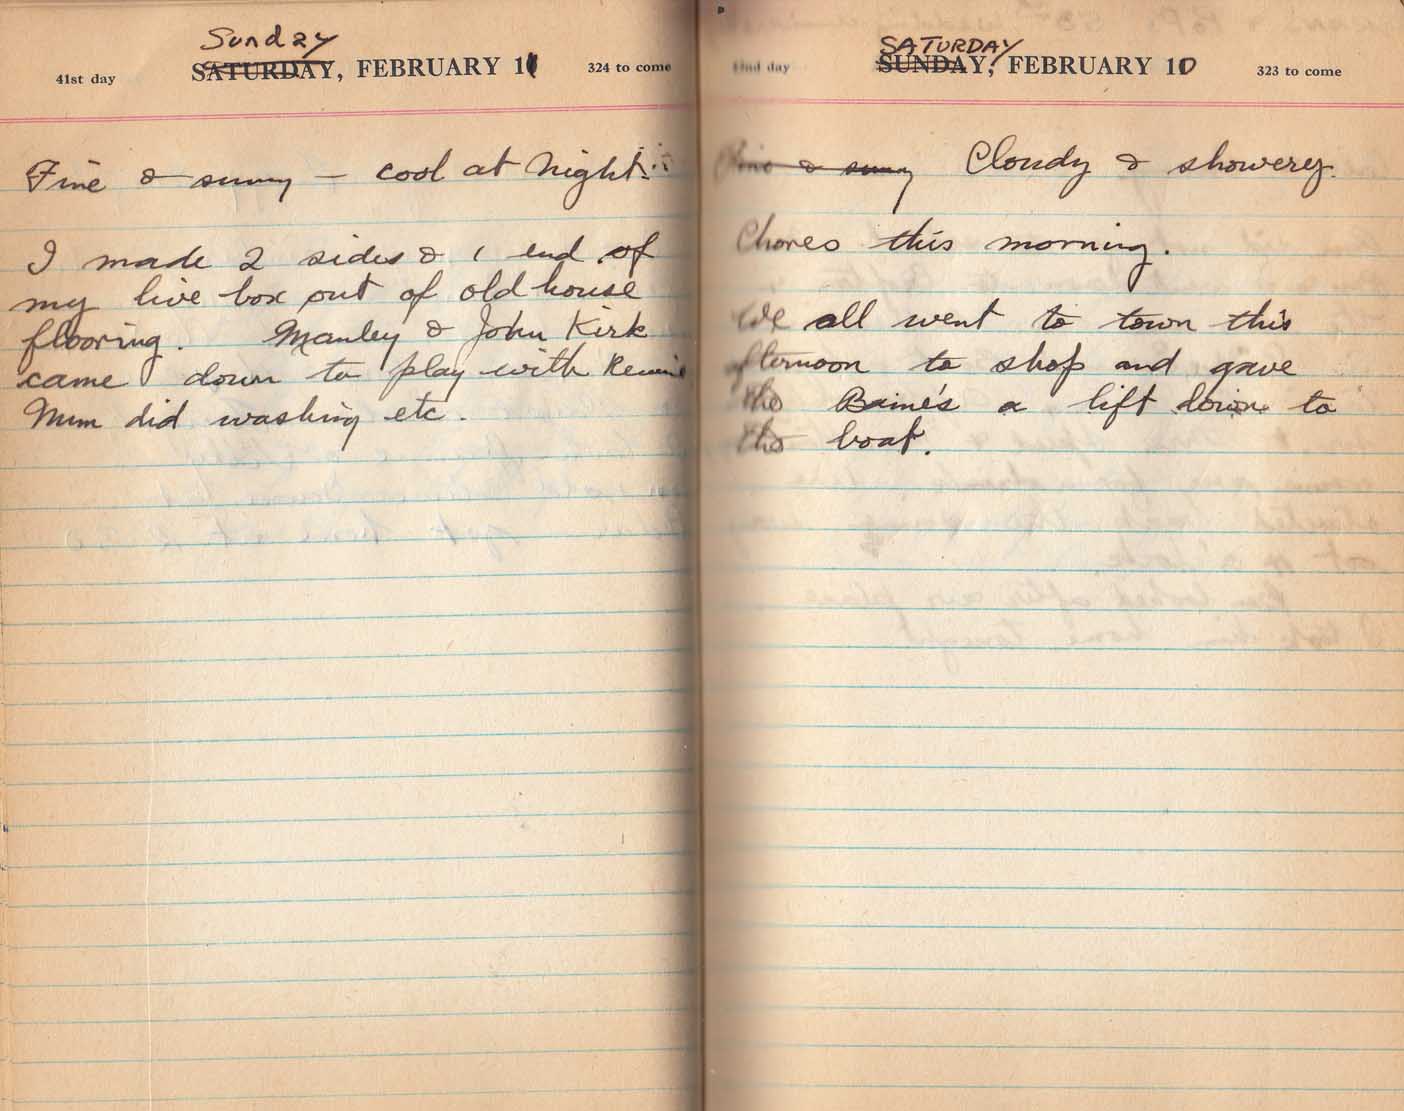 Sunday
41st day SATURDAY, FEBRUARY 11 324 to come
Fine & sunny – cool at night.
I made 2 sides & 1 end of
my live box out of old house
flooring. Manley & John Kirk
came down to play with
Mum did washing etc.
SATURDAY
42nd day SUNDAY, FEBRUARY 10 323 to come
Fine & sunny Cloudy & showery.
Chores this morning.
We all went to town this
afternoon to shop and gave
the Baine's a lift down to
the boat.